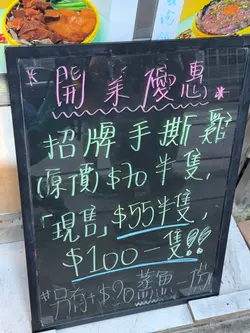 *開業優惠*
招牌手撕雞
(原價)$70半隻,
「現售」$55半隻,
$100一隻!!
#另存+$26蒸魚一份